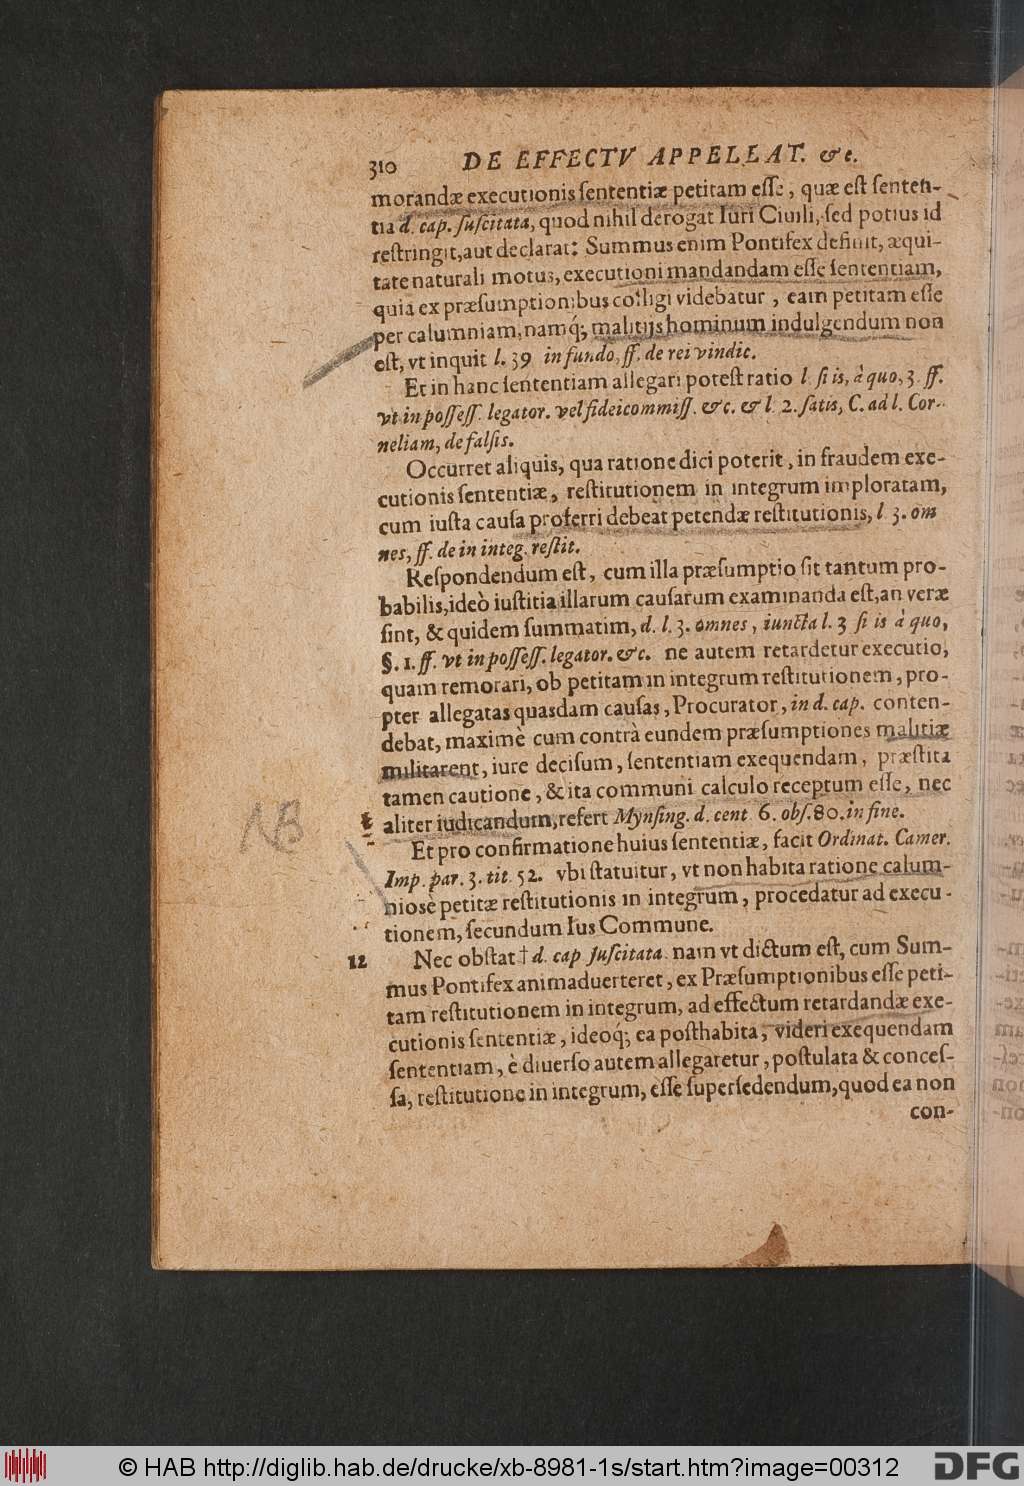 310 DE EFFECTV APPELLAT. &c.
morandæ executionis ſententiæ petitam eſſe, quæ eſt ſenten-
tia d. cap. ſuſcitata, quod nihil derogat Iuri Ciuili, ſed potius id
reſtringit, aut declarat: Summus enim Pontifex definit, æqui-
tate naturali motus, executioni mandandam eſſe ſententiam,
quia ex præſumptionibus colligi videbatur, eam petitam eſſe
per calumniam, namq́; malitijs hominum indulgendum non
eſt, vt inquit l. 39 in fundo, ff. de rei vindic.
Et in hanc ſententiam allegari poteſt ratio l. ſi is, à quo, 3. ff.
vt in poſſeſſ. legator. vel fideicommiſſ. &c. & l. 2. ſatis, C. ad l. Cor-
neliam, de falſis.
Occurret aliquis, qua ratione dici poterit, in fraudem exe-
cutionis ſententiæ, reſtitutionem in integrum imploratam,
cum iuſta cauſa proferri debeat petendæ reſtitutionis, l. 3. om
nes, ff. de in integ. reſtit.
Reſpondendum eſt, cum illa præſumptio ſit tantum pro-
babilis, ideò iuſtitia illarum cauſarum examinanda eſt, an veræ
ſint, & quidem ſummatim, d. l. 3. omnes, iuncta l. 3 ſi is à quo,
§. 1. ff. vt in poſſeſſ. legator. &c. ne autem retardetur executio,
quam remorari, ob petitam in integrum reſtitutionem, pro-
pter allegatas quasdam cauſas, Procurator, in d. cap. conten-
debat, maximè cum contrà eundem præſumptiones malitiæ
militarent, iure deciſum, ſententiam exequendam, præſtita
tamen cautione, & ita communi calculo receptum eſſe, nec
NB aliter iudicandum, refert Mynſing. d. cent. 6. obſ. 80. in fine.
Et pro confirmatione huius ſententiæ, facit Ordinat. Camer.
Imp. par. 3. tit. 52. vbi ſtatuitur, vt non habita ratione calum-
nioſè petitæ reſtitutionis in integrum, procedatur ad execu-
tionem, ſecundum Ius Commune.
12 Nec obſtat † d. cap ſuſcitata. nam vt dictum eſt, cum Sum-
mus Pontifex animaduerteret, ex Præſumptionibus eſſe peti-
tam reſtitutionem in integrum, ad effectum retardandæ exe-
cutionis ſententiæ, ideoq́; ea poſthabita, videri exequendam
ſententiam, è diuerſo autem allegaretur, poſtulata & conceſ-
ſa, reſtitutione in integrum, eſſe ſuperſedendum, quod ea non
con-
© HAB http://diglib.hab.de/drucke/xb-8981-1s/start.htm?image=00312
DFG